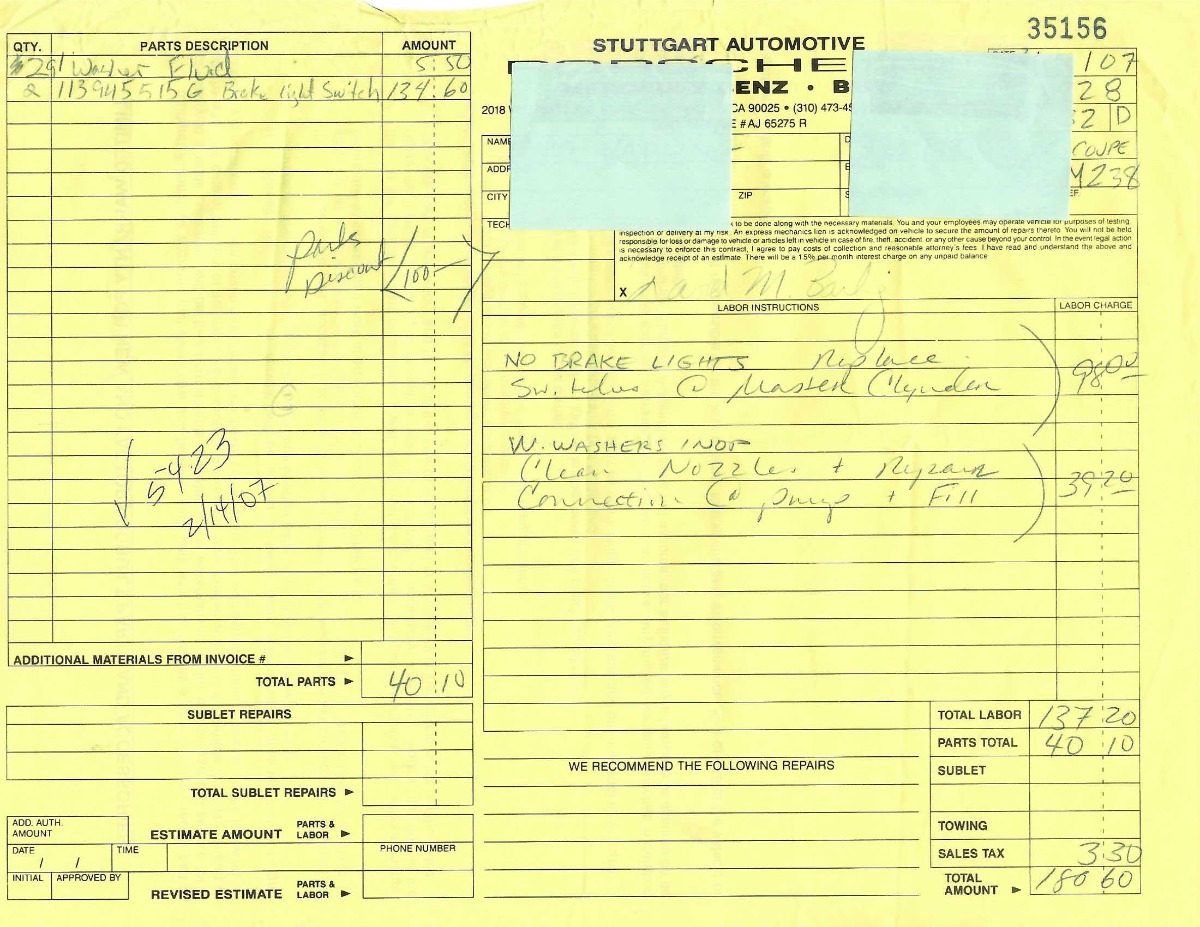 35156
QTY. PARTS DESCRIPTION AMOUNT
291 Washer Fluid 5.50
2 113945515G Brake light Switch 134.60
Parts
Discount
<100->
√ 5-4.23
2/14/07
ADDITIONAL MATERIALS FROM INVOICE # ►
TOTAL PARTS ► 40 10
SUBLET REPAIRS
TOTAL SUBLET REPAIRS ►
ADD. AUTH. AMOUNT
ESTIMATE AMOUNT PARTS & LABOR ►
DATE / / TIME
PHONE NUMBER
INITIAL APPROVED BY
REVISED ESTIMATE PARTS & LABOR ►
STUTTGART AUTOMOTIVE
PORSCHE
ENZ • B
2018 CA 90025 • (310) 473-45
E # AJ 65275 R
107
28
S2 D
COUPE
M238
NAME
ADDR
CITY ZIP
TECH
k to be done along with the necessary materials. You and your employees may operate vehicle for purposes of testing,
inspection or delivery at my risk. An express mechanics lien is acknowledged on vehicle to secure the amount of repairs thereto. You will not be held
responsible for loss or damage to vehicle or articles left in vehicle in case of fire, theft, accident, or any other cause beyond your control. In the event legal action
is necessary to enforce this contract, I agree to pay costs of collection and reasonable attorney's fees. I have read and understand the above and
acknowledge receipt of an estimate. There will be a 15% per month interest charge on any unpaid balance
X
LABOR INSTRUCTIONS LABOR CHARGE
NO BRAKE LIGHTS Replace
Switches @ Master Clynder 98.00
W. WASHERS INOP
Clean Nozzles + Repair 39.20
Connection @ pump + Fill
WE RECOMMEND THE FOLLOWING REPAIRS
TOTAL LABOR 137 20
PARTS TOTAL 40 10
SUBLET
TOWING
SALES TAX 3 30
TOTAL AMOUNT ► 180 60